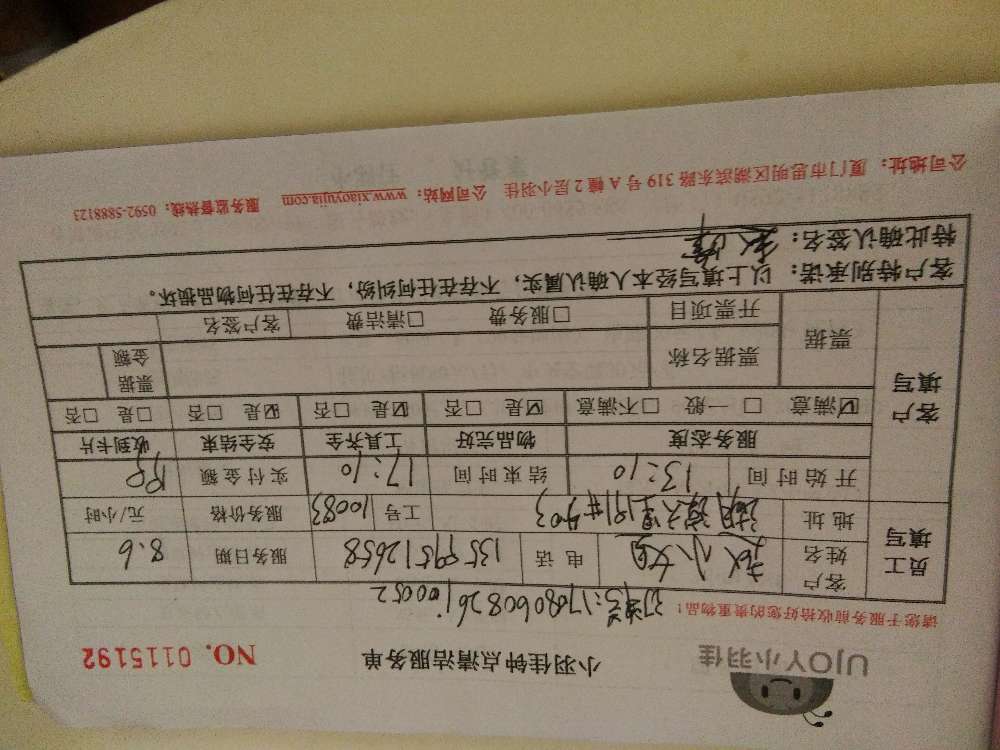 UJOY小羽佳
小羽佳钟点清洁服务单
NO. 0115192
请您于服务前收拾好您的贵重物品!
:170806082610052
员工填写
客户姓名 小姐 电话 13599512658 服务日期 8.6
地址 湖滨六里191#403 工号 10083 服务价格 元/小时
客户填写
开始时间 13:10 结束时间 17:10 实付金额
服务态度 物品完好 工具齐全 安全结束 收到卡片
☑满意 □一般 □不满意 ☑是 □否 ☑是 □否 ☑是 □否 □是 □否
票据 票据名称 票据金额
开票项目 □服务费 □清洁费 客户签名
客户特别承诺:以上填写经本人确认属实,不存在任何纠纷,不存在任何物品损坏。
特此确认签名:
公司地址:厦门市思明区湖滨东路 319 号 A 幢 2 层小羽佳 公司网站:www.xiaoyujia.com 服务监督热线:0592-5888123